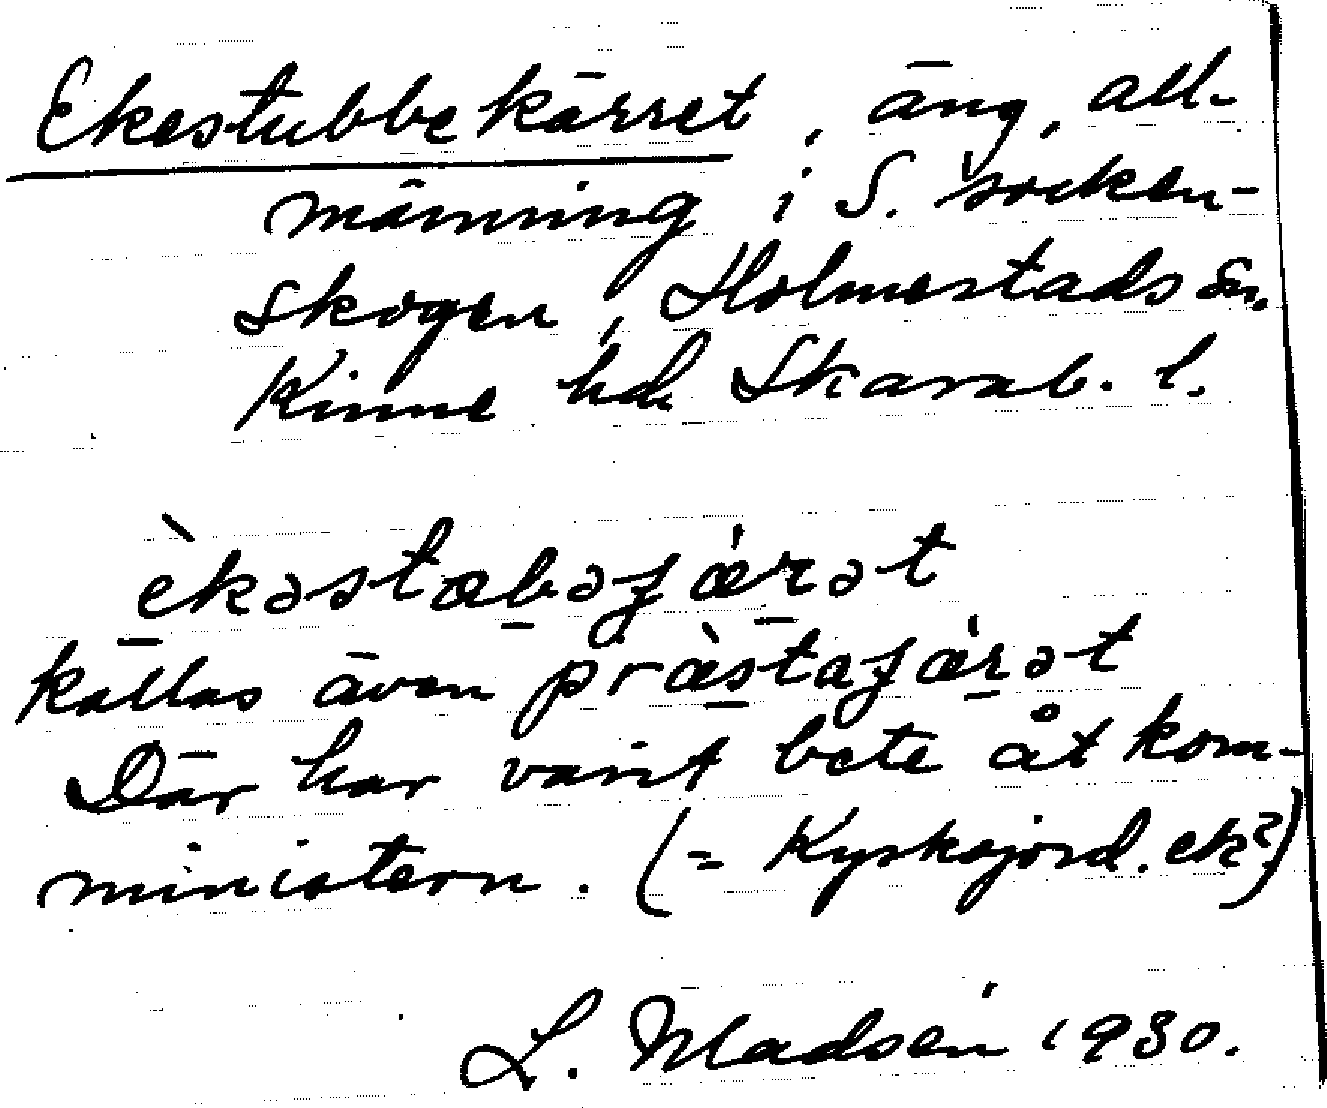 Ekestubbekärret, äng, all-
männing i S. socken-
skogen, Holmestads sn.
Kinne hd. Skarab. l.
èkəstæbəʃǽrət
kallas även præ̀staʃǽrət
Där har varit bete åt kom-
ministern. (= Kyrkojord. ek?)
L. Madsén 1930.